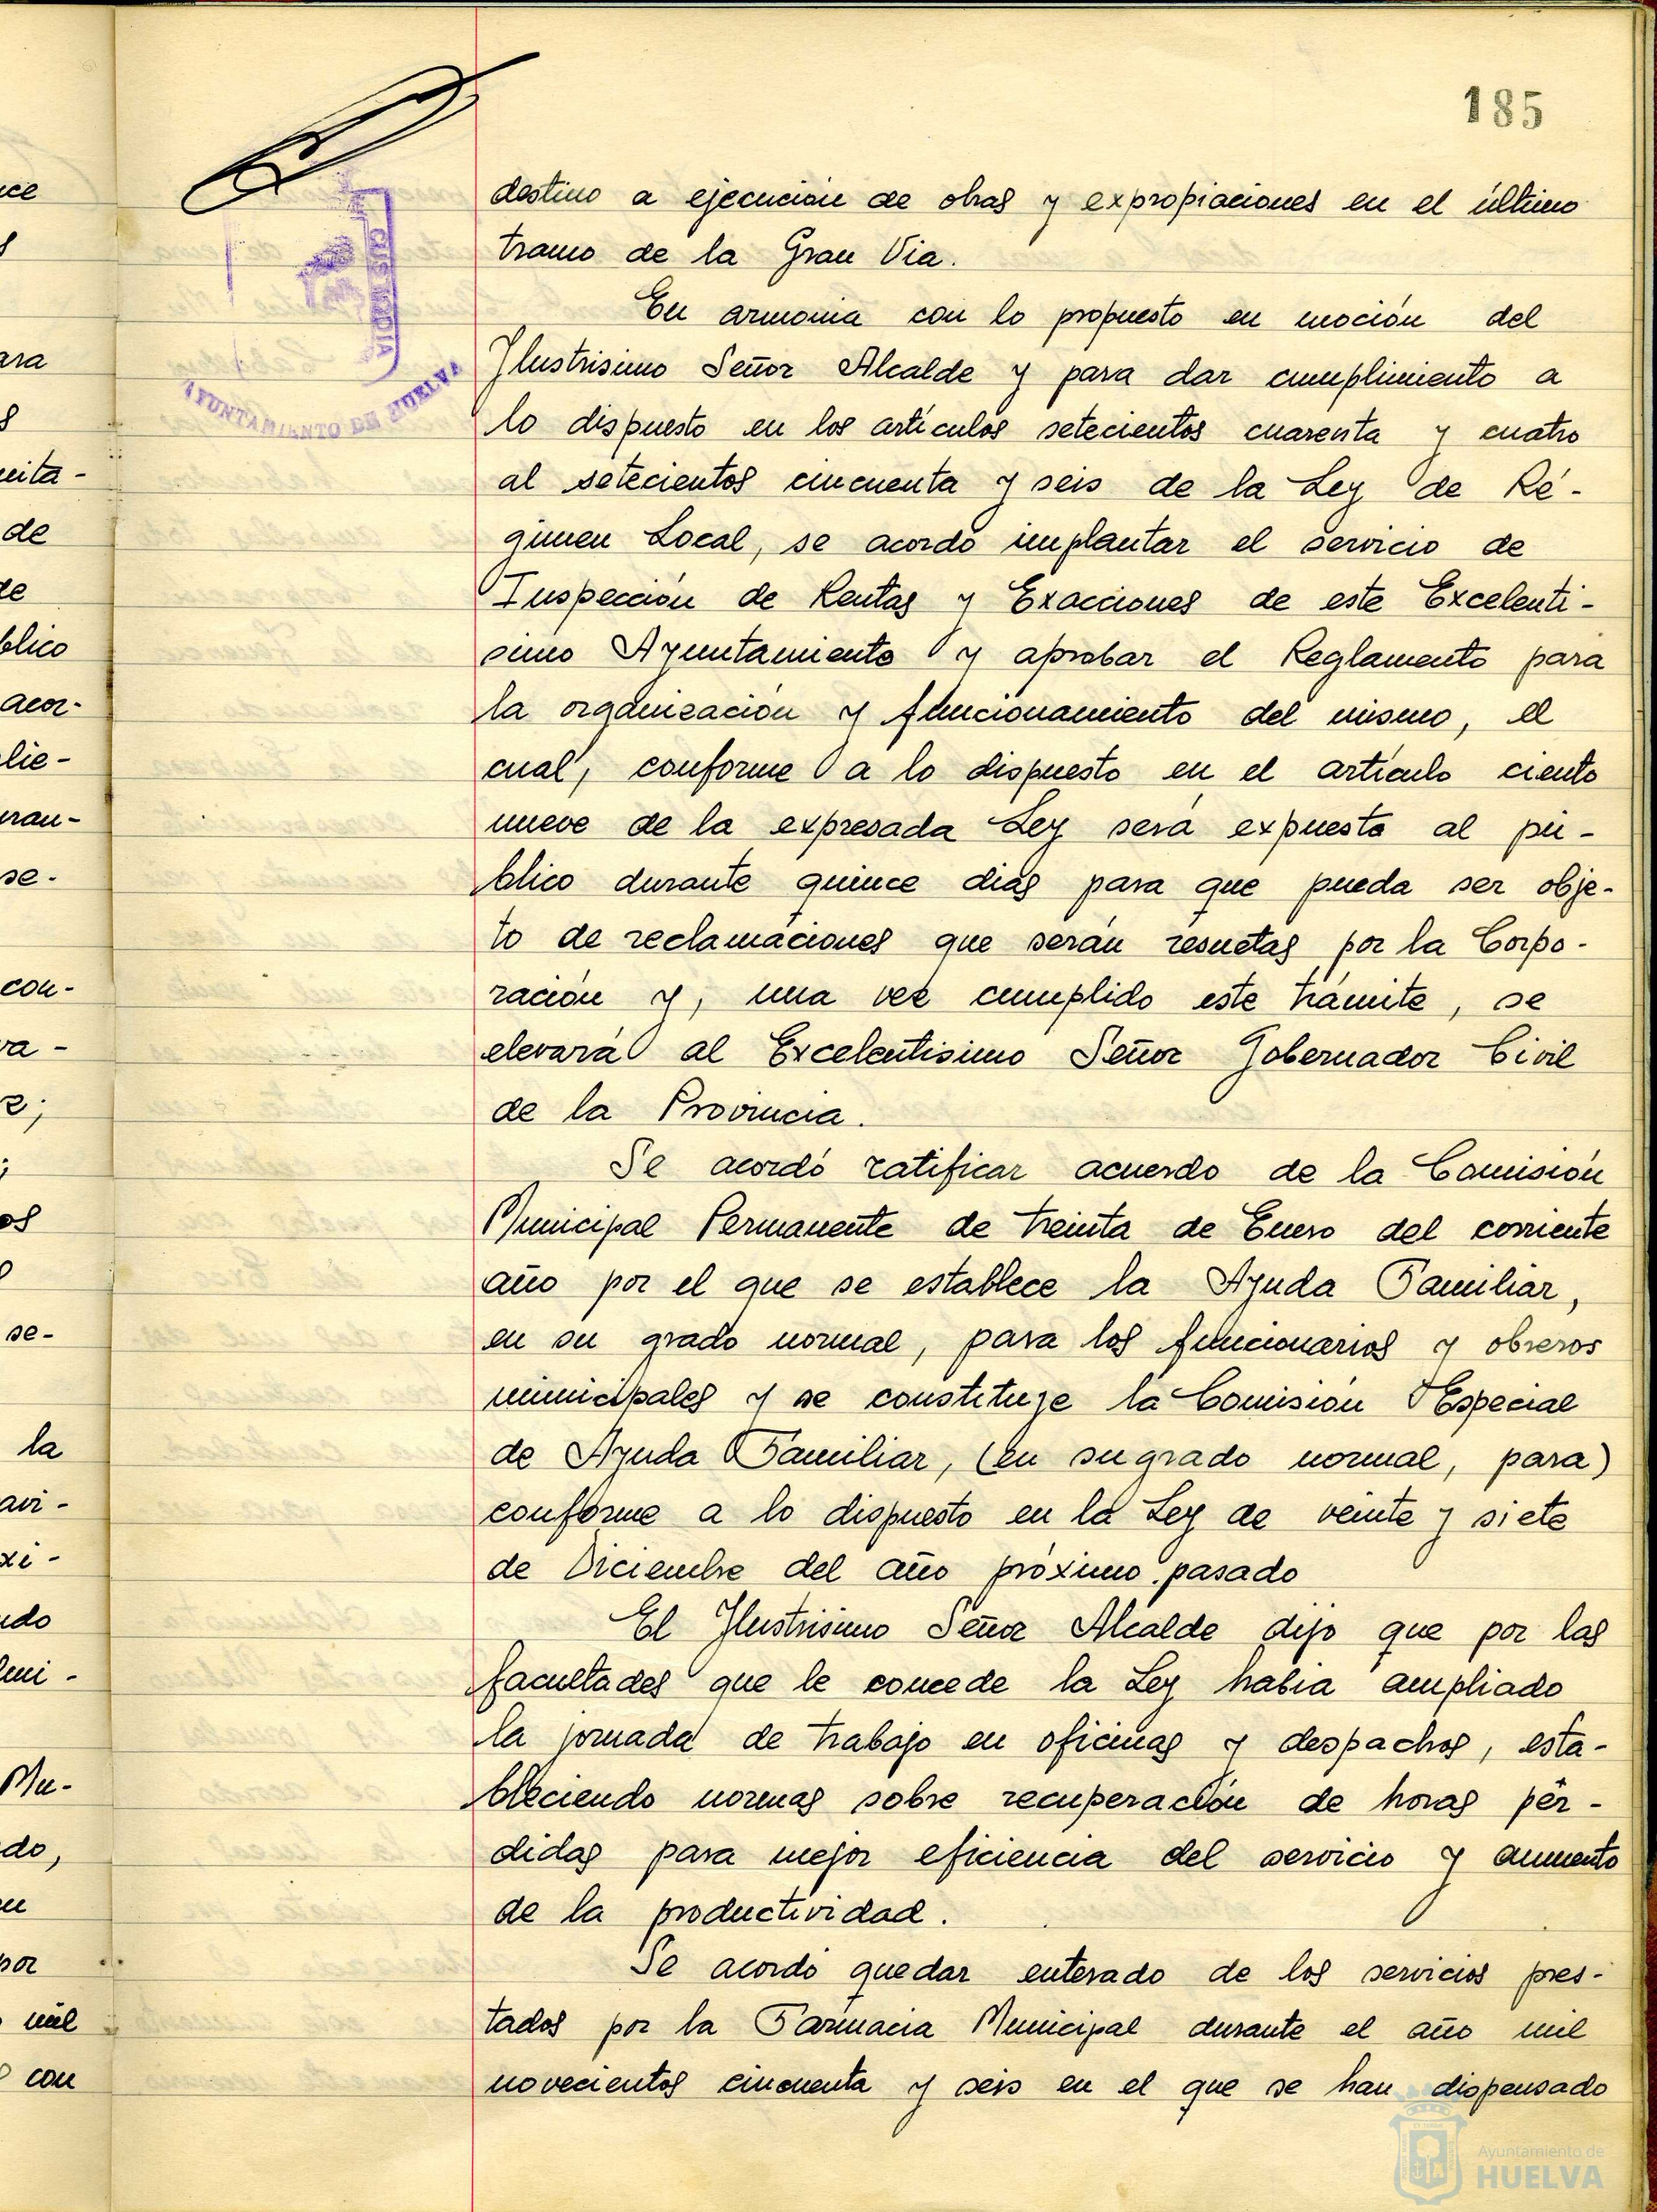 185
CUSTODIA
AYUNTAMIENTO DE HUELVA
destino a ejecución de obras y expropiaciones en el último
tramo de la Gran Via.
En armonia con lo propuesto en moción del
Ilustrisimo Señor Alcalde y para dar cumplimiento a
lo dispuesto en los artículos setecientos cuarenta y cuatro
al setecientos cincuenta y seis de la Ley de Ré-
gimen Local, se acordó implantar el servicio de
Inspección de Rentas y Exacciones de este Excelenti-
simo Ayuntamiento y aprobar el Reglamento para
la organización y funcionamiento del mismo, el
cual, conforme a lo dispuesto en el artículo ciento
nueve de la expresada Ley será expuesto al pú-
blico durante quince dias para que pueda ser obje-
to de reclamaciones que serán resuetas por la Corpo-
ración y, una vez cumplido este trámite, se
elevará al Excelentisimo Señor Gobernador Civil
de la Provincia.
Se acordó ratificar acuerdo de la Comisión
Municipal Permanente de treinta de Enero del corriente
año por el que se establece la Ayuda Familiar,
en su grado normal, para los funcionarios y obreros
municipales y se constituye la Comisión Especial
de Ayuda Familiar, (en su grado normal, para)
conforme a lo dispuesto en la Ley de veinte y siete
de Diciembre del año próximo pasado
El Ilustrisimo Señor Alcalde dijo que por las
facultades que le concede la Ley habia ampliado
la jornada de trabajo en oficinas y despachos, esta-
bleciendo normas sobre recuperación de horas pér-
didas para mejor eficiencia del servicio y aumento
de la productividad.
Se acordó quedar enterado de los servicios pres-
tados por la Farmacia Municipal durante el año mil
novecientos cincuenta y seis en el que se han dispensado
Ayuntamiento de
HUELVA